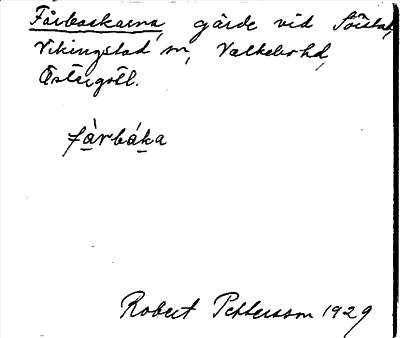 Fårbackarna, gärde vid Söistad,
Vikingstad sn, Valkebo hd,
Östergötl.
fàrbáka
Robert Pettersson 1929